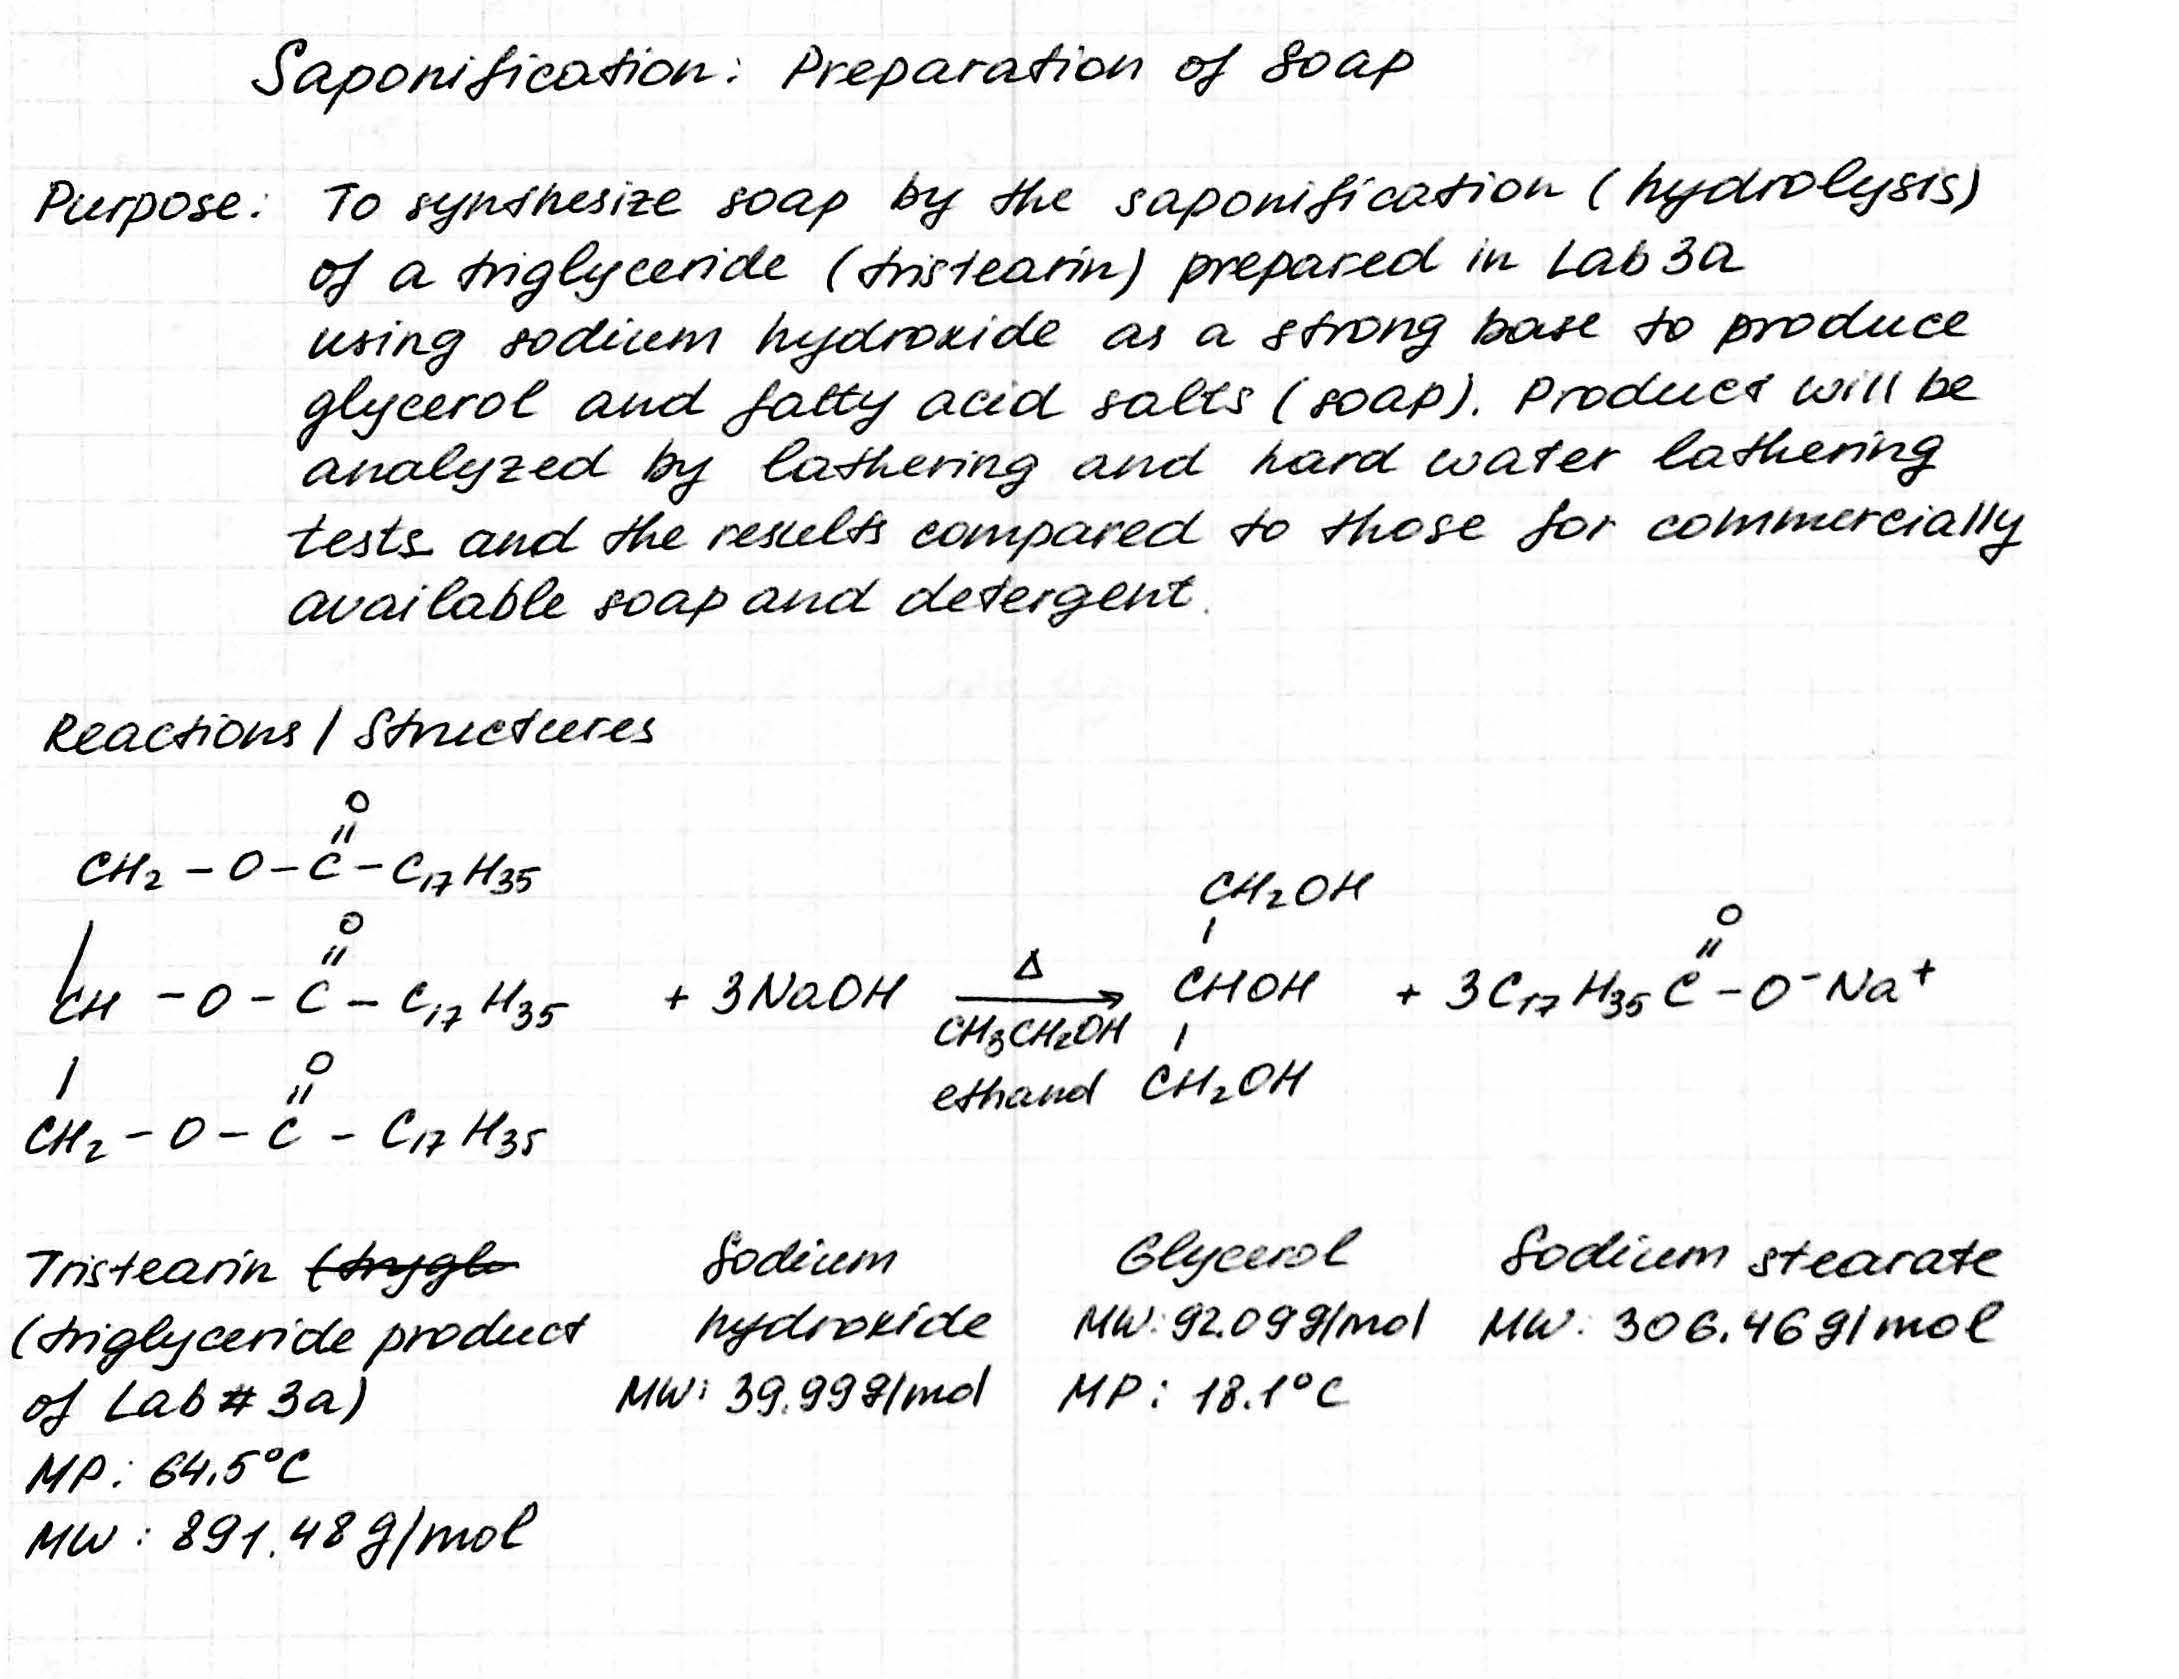 Saponification: Preparation of Soap
Purpose: To synthesize soap by the saponification (hydrolysis)
of a triglyceride (tristearin) prepared in Lab 3a
using sodium hydroxide as a strong base to produce
glycerol and fatty acid salts (soap). Product will be
analyzed by lathering and hard water lathering
tests and the results compared to those for commercially
available soap and detergent.
Reactions / Structures
O
||
CH₂ - O - C - C₁₇H₃₅
O
||
CH - O - C - C₁₇H₃₅
O
||
CH₂ - O - C - C₁₇H₃₅
+ 3NaOH
Δ
→
CH₃CH₂OH
ethanol
CH₂OH
|
CHOH
|
CH₂OH
O
||
+ 3C₁₇H₃₅C - O⁻Na⁺
Tristearin
(triglyceride product
of Lab # 3a)
MP: 64.5°C
MW: 891.48 g/mol
Sodium
hydroxide
MW: 39.99 g/mol
Glycerol
MW: 92.09 g/mol
MP: 18.1°C
Sodium stearate
MW: 306.46 g/mol